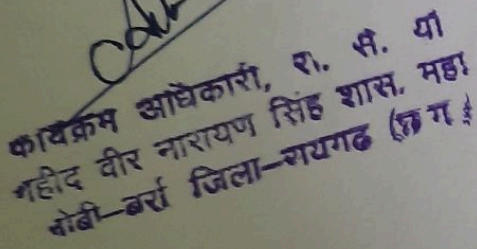 कार्यक्रम अधिकारी, रा. से. यो
शहीद वीर नारायण सिंह शास. महा
जोबी-बर्रा जिला-रायगढ (छ ग